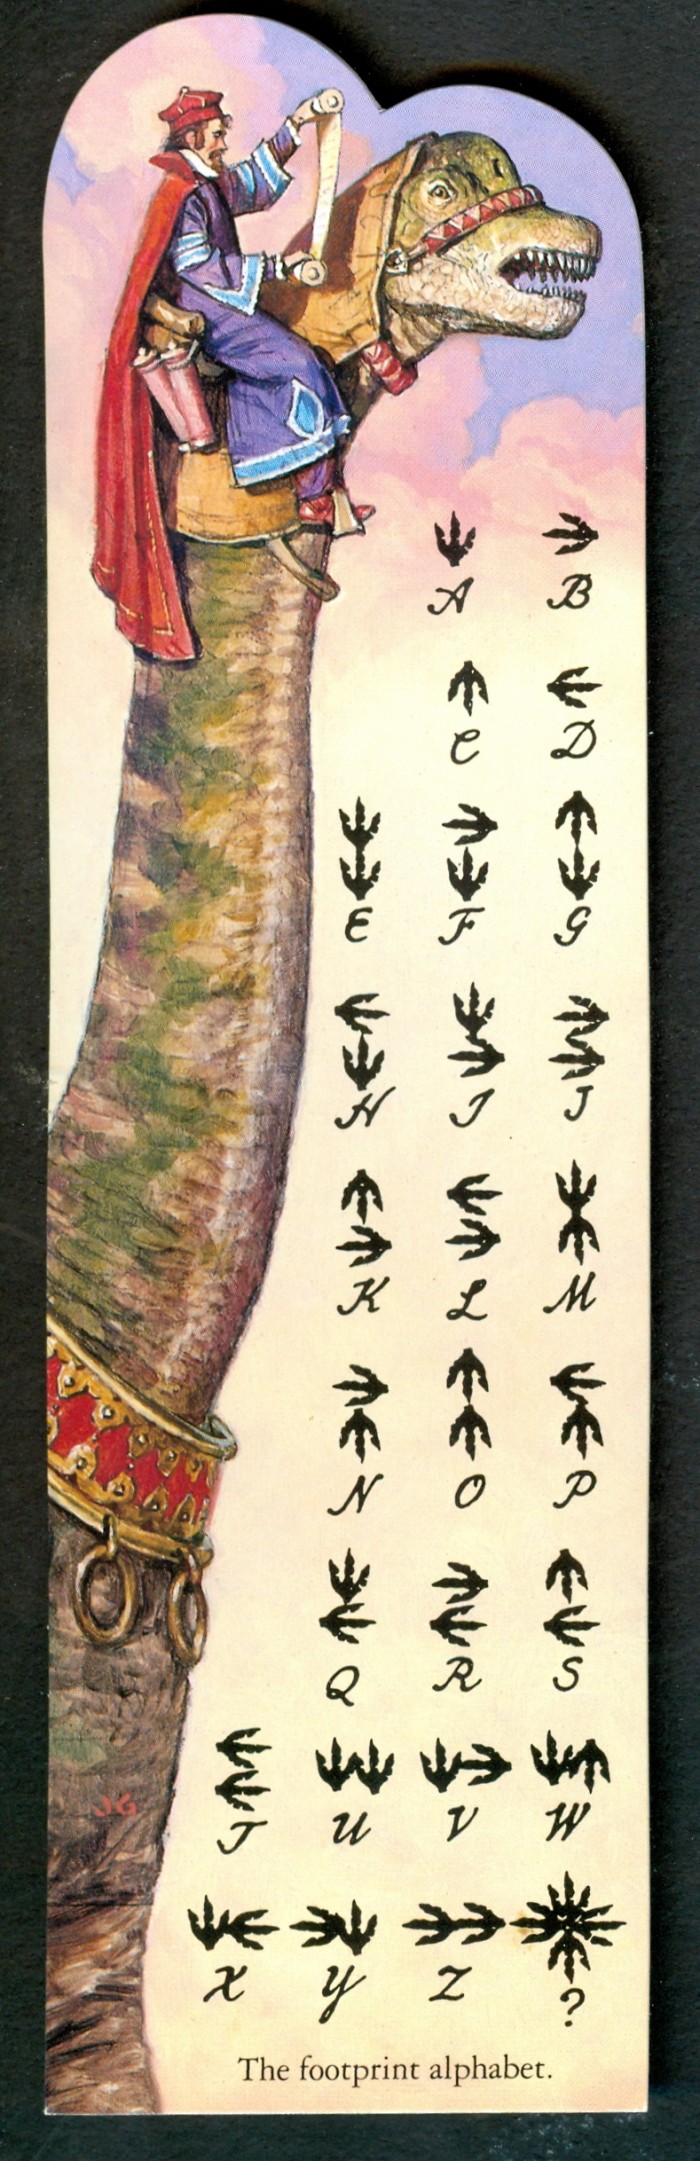 A B
C D
E F G
H I J
K L M
N O P
Q R S
JG
T U V W
X Y Z ?
The footprint alphabet.